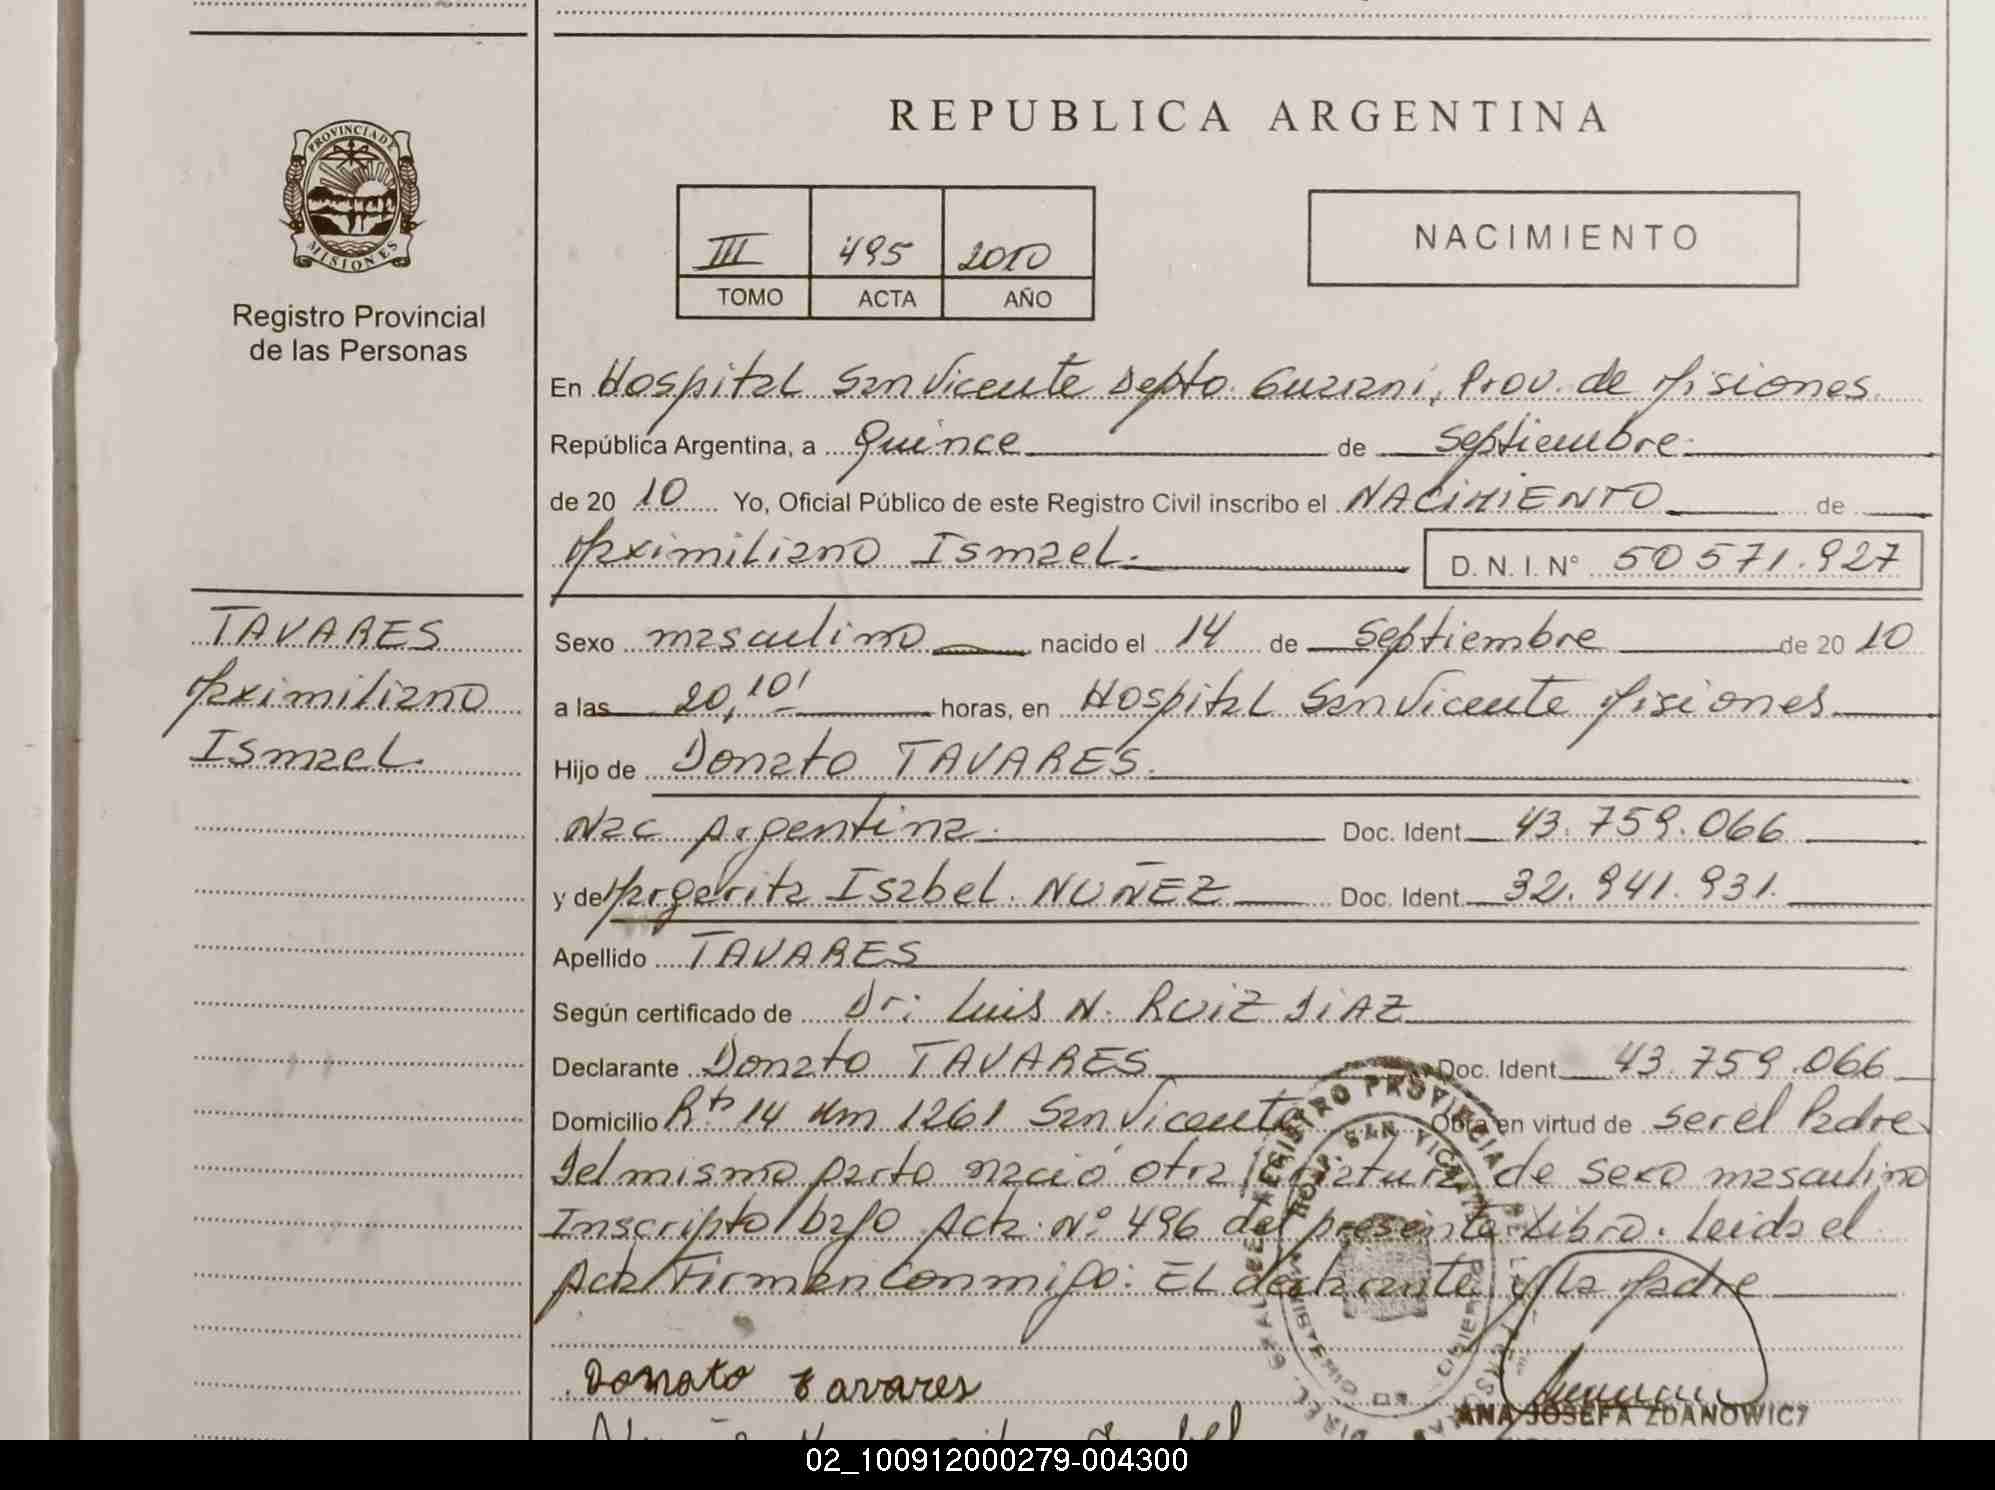 REPUBLICA ARGENTINA
PROVINCIA DE
MISIONES
Registro Provincial
de las Personas
III 495 2010
TOMO ACTA AÑO
NACIMIENTO
En Hospital San Vicente Depto. Guarani, Prov. de Misiones.
República Argentina, a Quince de Septiembre.
de 20 10 Yo, Oficial Público de este Registro Civil inscribo el NACIMIENTO de
Maximiliano Ismael. D. N. I. N° 50 571.927
TAVARES
Maximiliano
Ismael.
Sexo masculino nacido el 14 de Septiembre de 20 10
a las 20,10' horas, en Hospital San Vicente Misiones
Hijo de Donato TAVARES.
Nac Argentina. Doc. Ident. 43.759.066
y de Margarita Isabel. NUÑEZ Doc. Ident. 32.941.931.
Apellido TAVARES
Según certificado de Dr: Luis N. RUIZ DIAZ
Declarante Donato TAVARES Doc. Ident. 43.759.066
Domicilio Rta 14 Km 1261 San Vicente Obra en virtud de ser el Padre
Del mismo parto nació otra criatura de sexo masculino
Inscripto bajo Acta N° 496 del presente Libro. Leida el
Acta Firman Conmigo: EL declarante y la Madre
Donato tavares
Isabel
REGISTRO PROVINCIAL
HOSP. SAN VICENTE
ANA JOSEFA ZDANOWICZ
02_100912000279-004300